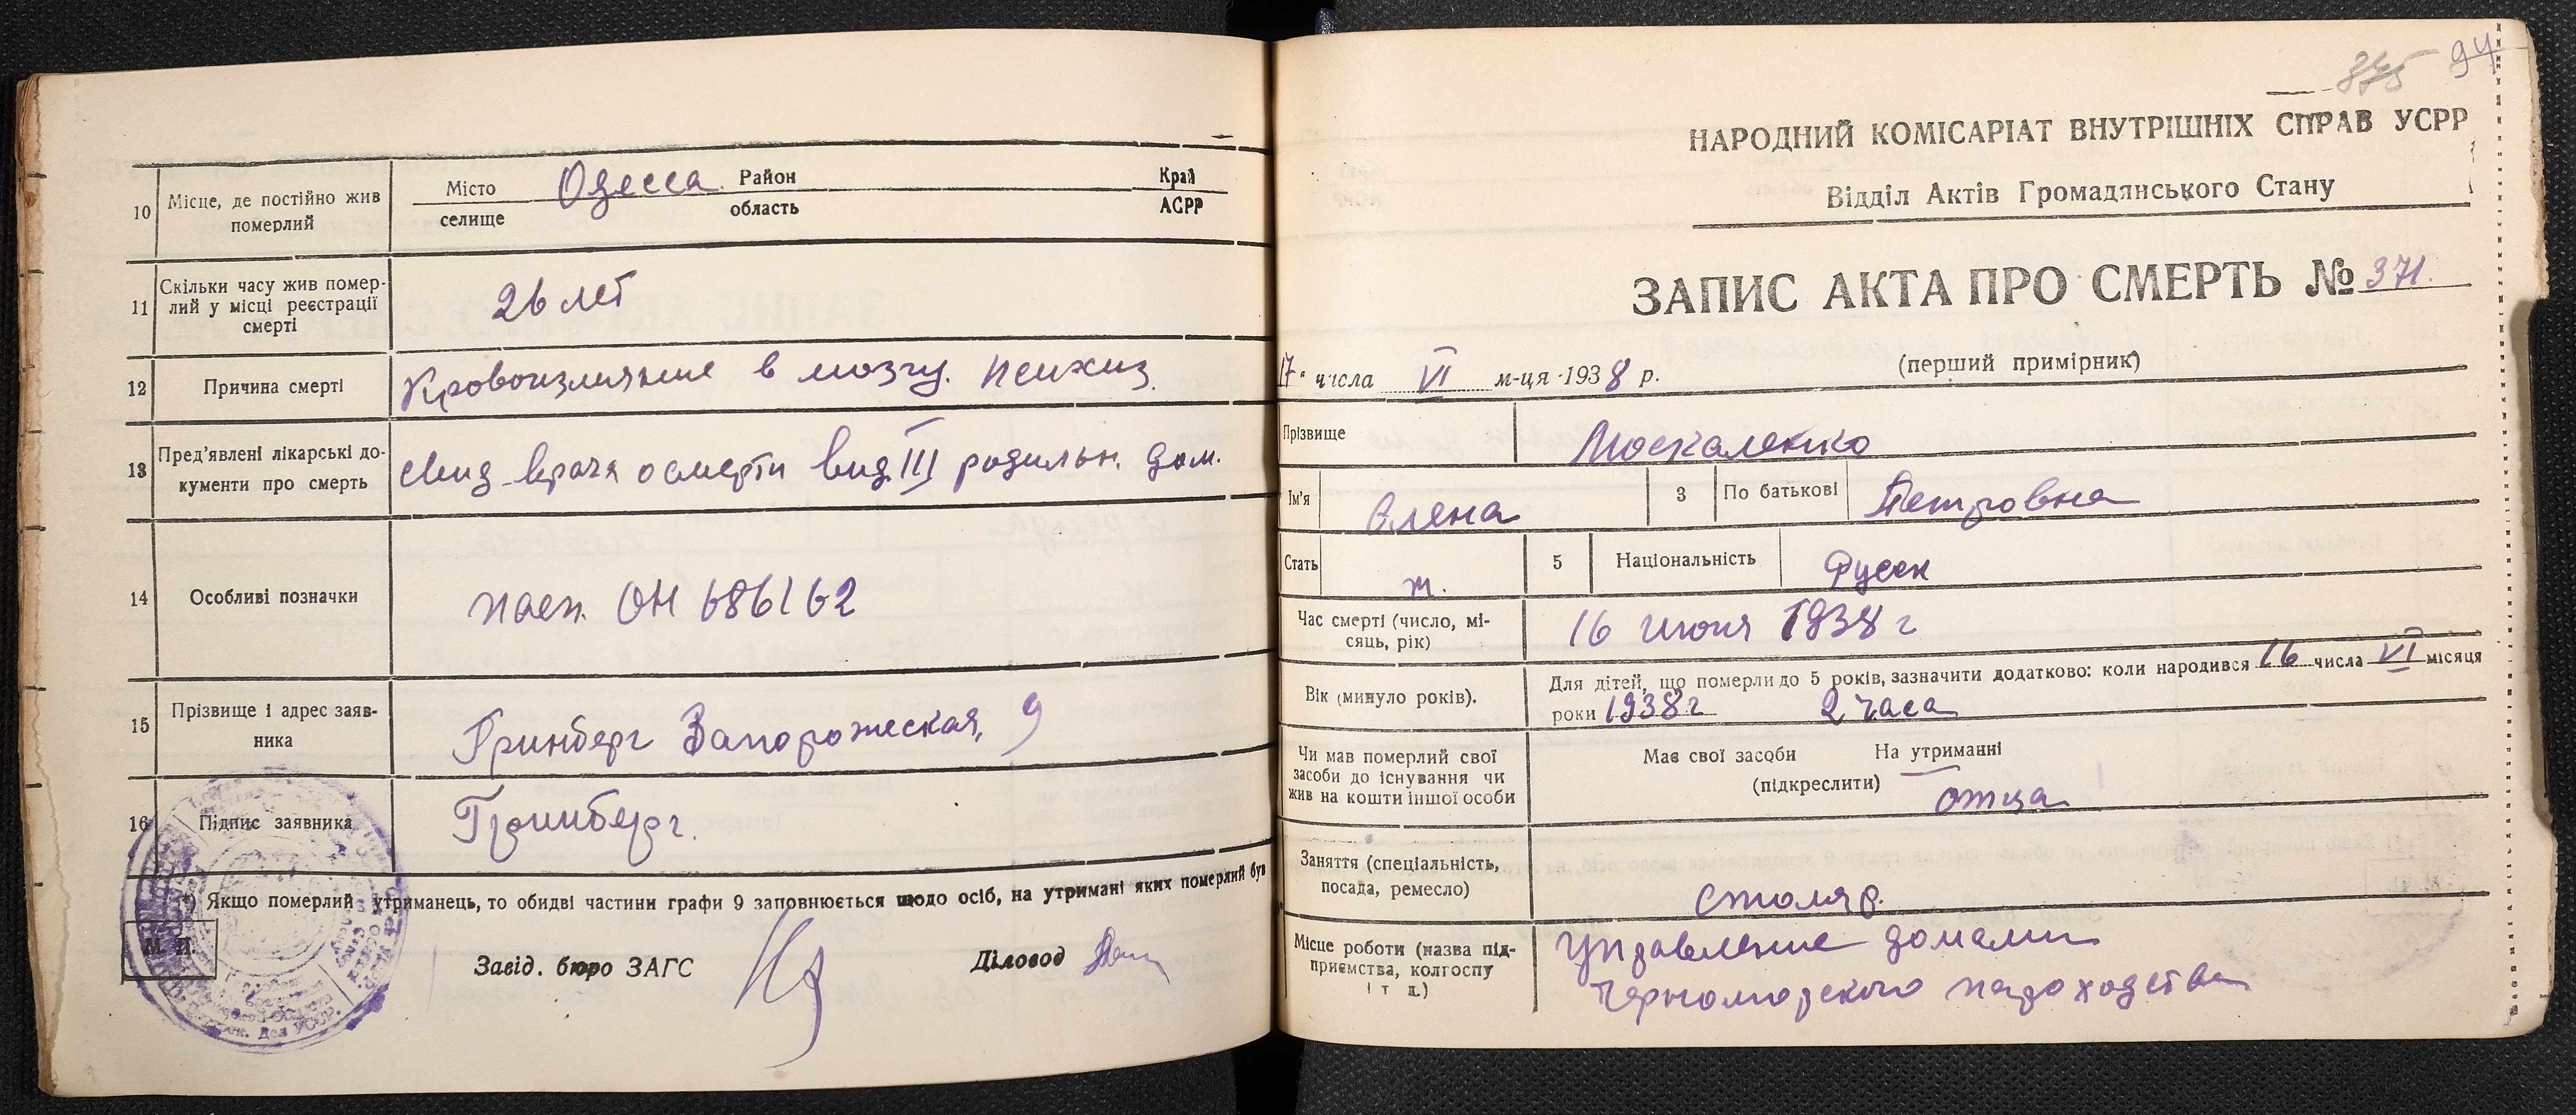 10
Місце, де постійно жив
померлий
Місто Одесса Район Край
селище область АСРР
11
Скільки часу жив помер-
лий у місці реєстрації
смерті
26 лет
12
Причина смерті
Кровоизлияние в мозгу.
13
Пред'явлені лікарські до-
кументи про смерть
свид. врача о смерти вид. III родильн. дом.
14
Особливі позначки
пасп. ОН 686162
15
Прізвище і адрес заяв-
ника
Гринберг Запорожеская, 9
16
Підпис заявника
Гринберг.
*) Якщо померлий утриманець, то обидві частини графи 9 заповнюється щодо осіб, на утримані яких померлий був
М. П.
Завід. бюро ЗАГС Діловод
375 94
НАРОДНИЙ КОМІСАРІАТ ВНУТРІШНІХ СПРАВ УСРР
Відділ Актів Громадянського Стану
ЗАПИС АКТА ПРО СМЕРТЬ № 371.
17" числа VI м-ця 1938 р. (перший примірник)
Прізвище Москаленко
Ім'я Елена 3 По батькові Петровна
Стать ж. 5 Національність Русск
Час смерті (число, мі-
сяць, рік)
16 июня 1938 г
Вік (минуло років).
Для дітей, що померли до 5 років, зазначити додатково: коли народився 16 числа VI місяця
роки 1938 г 2 часа
Чи мав померлий свої
засоби до існування чи
жив на кошти іншої особи
Має свої засоби На утриманні
(підкреслити) отца
Заняття (спеціальність,
посада, ремесло)
столяр.
Місце роботи (назва під-
приємства, колгоспу
і т д.)
Управление домами
Черноморского пароходства